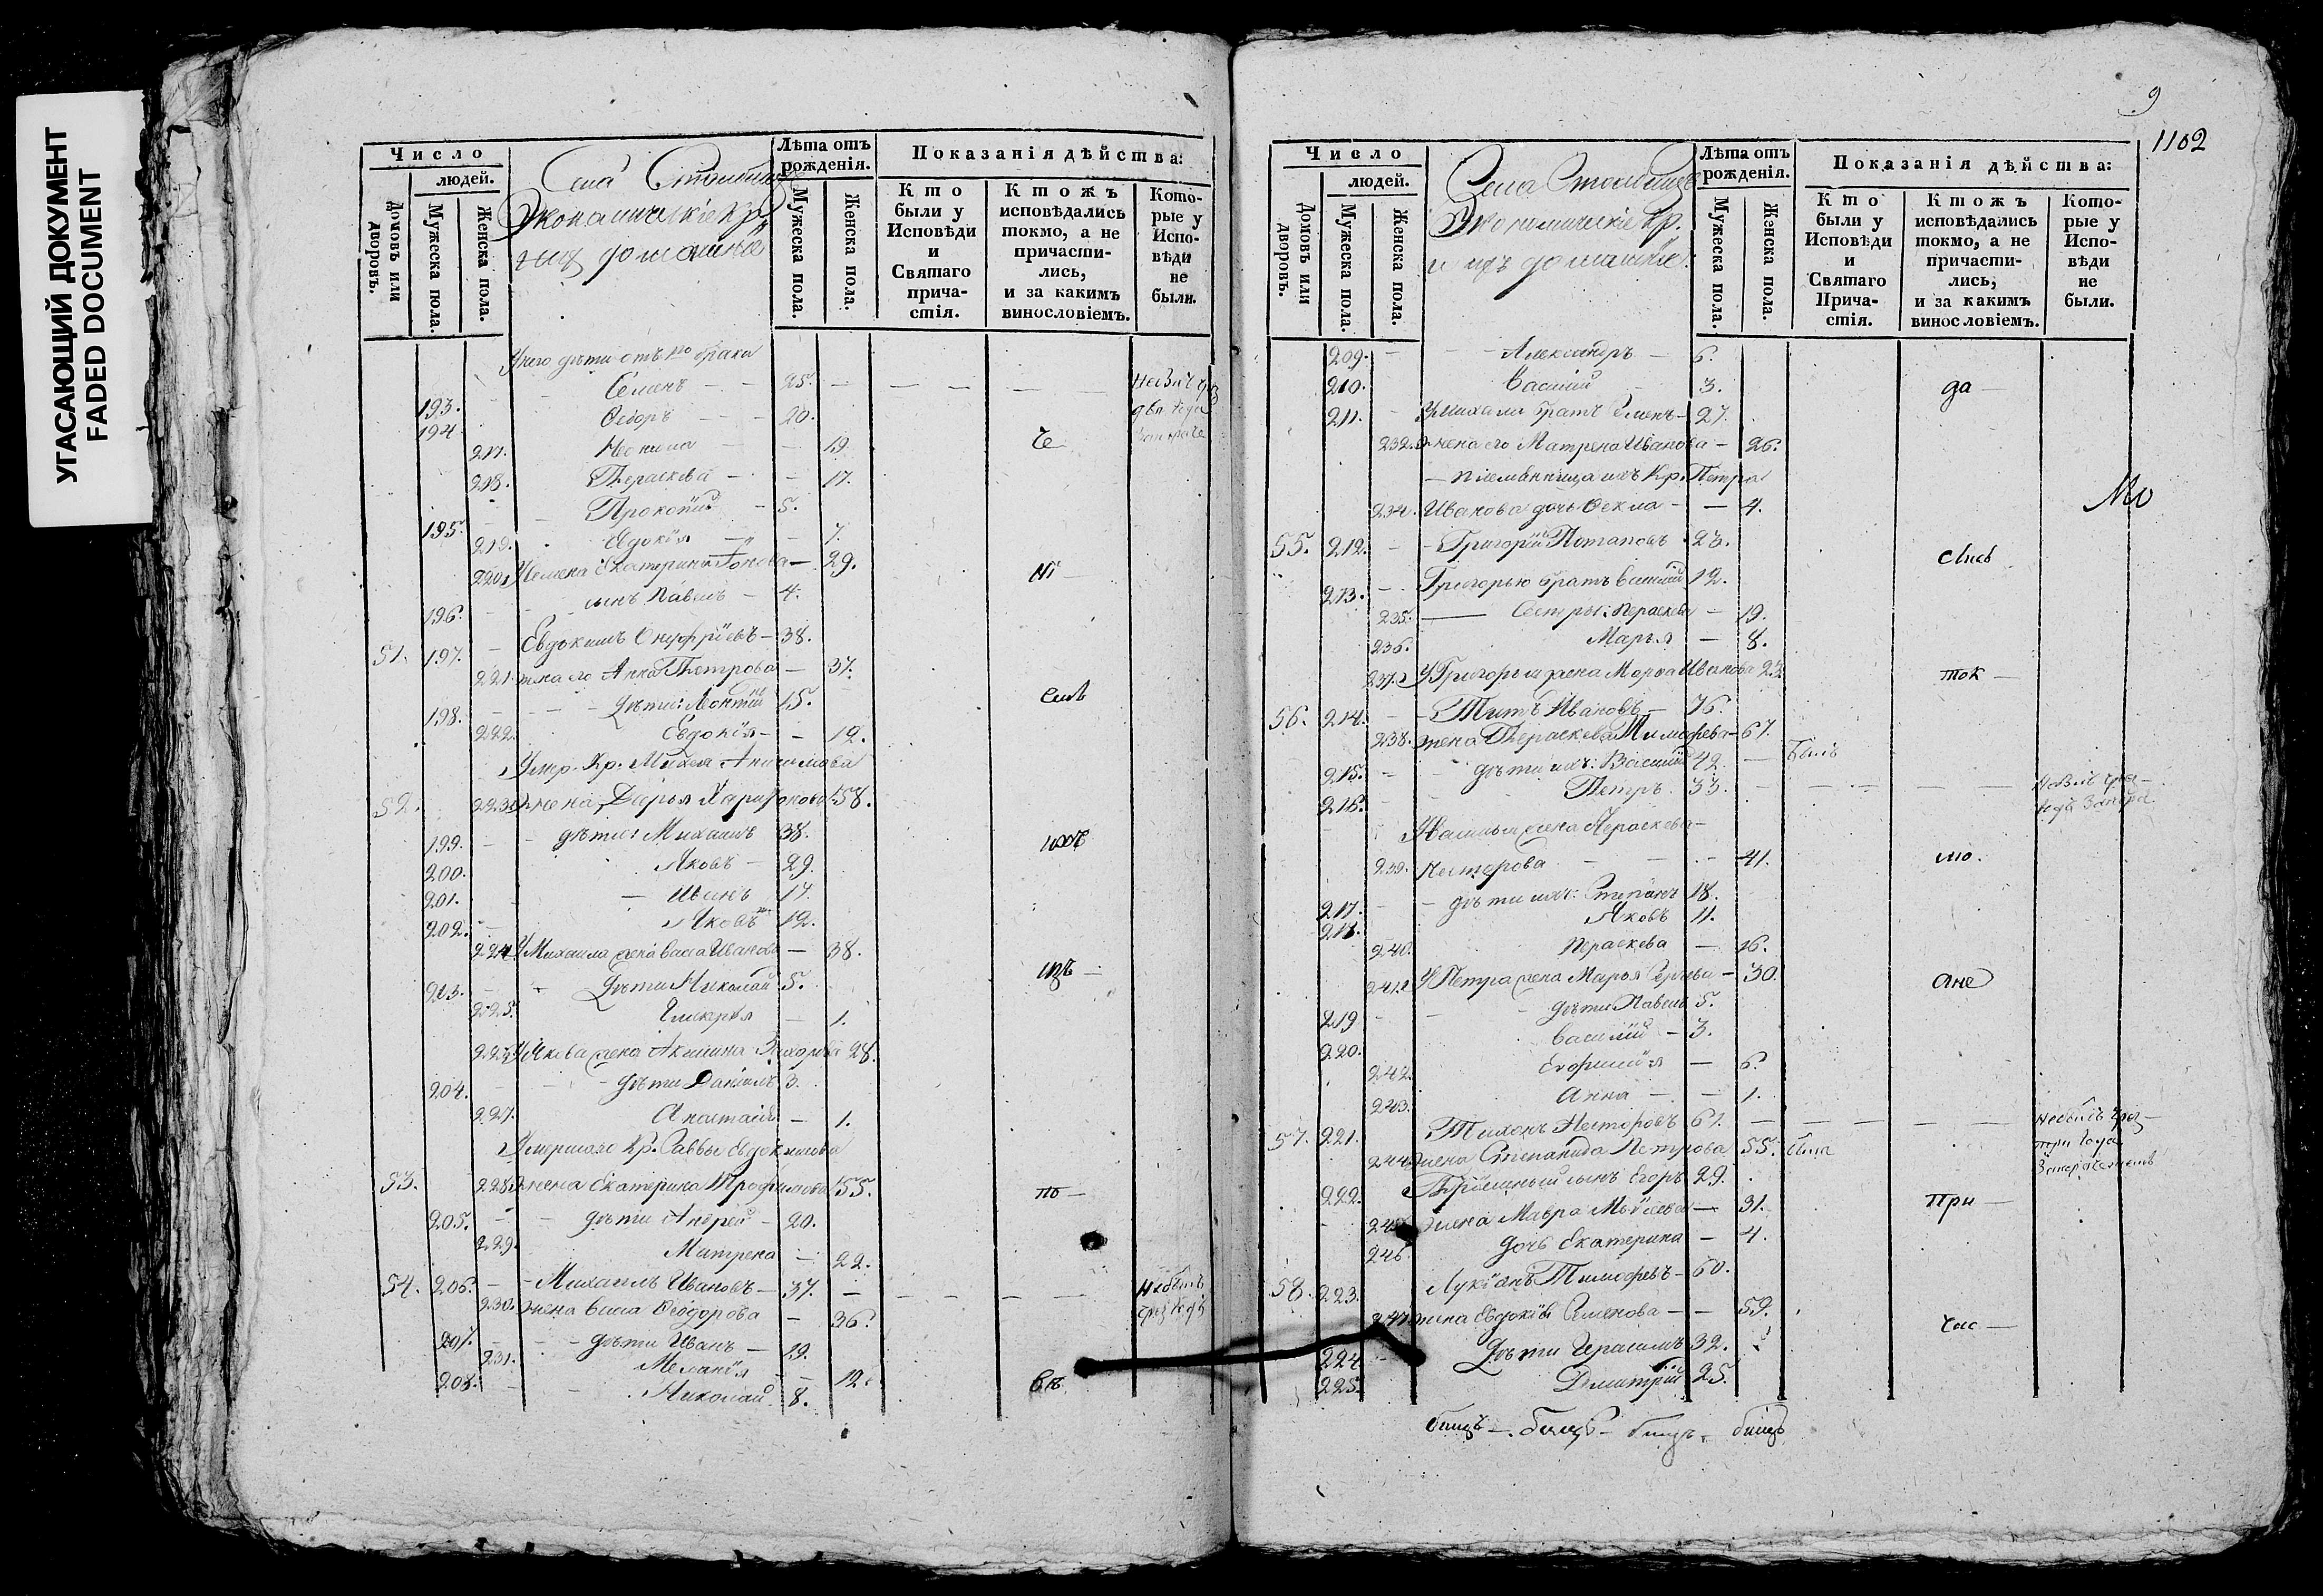 УГАСАЮЩИЙ ДОКУМЕНТ
FADED DOCUMENT
Число
людей.
Домовъ или дворовъ.
Мужеска пола.
Женска пола.
Села
Экономическіе Кр.
домашніе
Лѣта отъ рожденія.
Мужеска пола.
Женска пола.
Показанія дѣйства:
Кто были у Исповѣди и Святаго причастія.
Ктожъ исповѣдались токмо, а не причастились, и за какимъ винословіемъ.
Которые у Исповѣди не были.
У него дѣти отъ 1го брака
193. Семенъ 25.
194. Ѳедоръ 20.
217. 19
218. Пераскева 17.
195. Прокопій 5.
219. Евдокія 7.
220. Семена Екатерина 29.
196. сынъ Павелъ 4.
51. 197. Евдокимъ Онуфріевъ 38.
221. жена его Анна Петрова 37.
198. дѣти: Леонтій 15.
222. Евдокія 12.
Умер. Кр. Михея Анисимова
52. 223. жена Дарья Харитонова 58.
199. дѣти: Михаилъ 38.
200. Яковъ 29.
201. Иванъ 17.
202. Яковъ 12.
224. У Михаила жена Васса Иванова 38.
203. Дѣти Николай 5.
225. Гликерія 1.
У Якова жена Акилина 28.
204. дѣти Даніилъ 3.
227. Анастасія 1.
Умершаго Кр. Саввы Евдокимова
53. 228. жена Екатерина Трофимова 55.
205. дѣти Андрей 20.
229. Матрена 22.
54. 206. Михаилъ Ивановъ 37. Небылъ
230. жена Васса Ѳеодорова 36.
207. дѣти Иванъ 19.
231. Меланія 12.
208. Николай 8.
9
1102
Число
людей.
Домовъ или дворовъ.
Мужеска пола.
Женска пола.
Села
Экономическіе Кр.
и ихъ домашніе.
Лѣта отъ рожденія.
Мужеска пола.
Женска пола.
Показанія дѣйства:
Кто были у Исповѣди и Святаго Причастія.
Ктожъ исповѣдались токмо, а не причастились, и за какимъ винословіемъ.
Которые у Исповѣди не были.
209. Александръ 6.
210. Василій 3. да
211. У Михаила братъ Семенъ 27.
232. жена его Матрена Иванова 26.
племянница ихъ Кр. Петра
234. Иванова дочь Ѳекла 4.
55. 212. Григорій Потаповъ 23.
213. Григорью братъ Василій 12.
235. Сестры: Пераскева 19.
236. Марья 8.
237. У Григорья жена Марѳа Иванова 23
56. 214. Титъ Ивановъ 76.
238. жена Пераскева Тимофева 67.
215. дѣти ихъ: Василій 42. былъ
216. Петръ 33.
У Василья жена Пераскева
239. Нестерова 41.
217. дѣти ихъ: Степанъ 18.
218. Яковъ 11.
240. Пераскева 16.
241. У Петра жена Марья 30.
219 дѣти Павелъ 5.
220. Василій 3.
242. Евфимія 6.
243. Анна 1.
57. 221. Тихонъ Нестеровъ 61. небылъ
244. жена Степанида Петрова 55. была
три года
222. сынъ Егоръ 29.
жена Мавра Моѵсеева 31. при
246. дочь Екатерина 4.
58. 223. Лукіанъ Тимофевъ 60.
247. жена Евдокія Семенова 59.
час
224. Дѣти Герасимъ 32.
225. Димитрій 25.